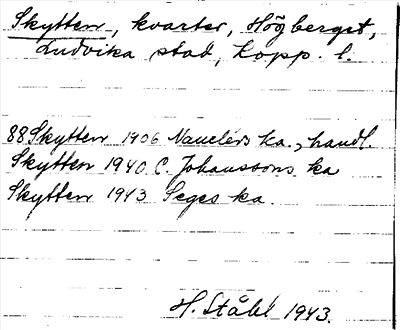 Skytten, kvarter, Högberget,
Ludvika stad, Kopp. l.
88 Skytten 1906 Nauclérs ka., handl.
Skytten 1940 C. Johanssons ka
Skytten 1943 Seges ka.
H. Ståhl 1943.